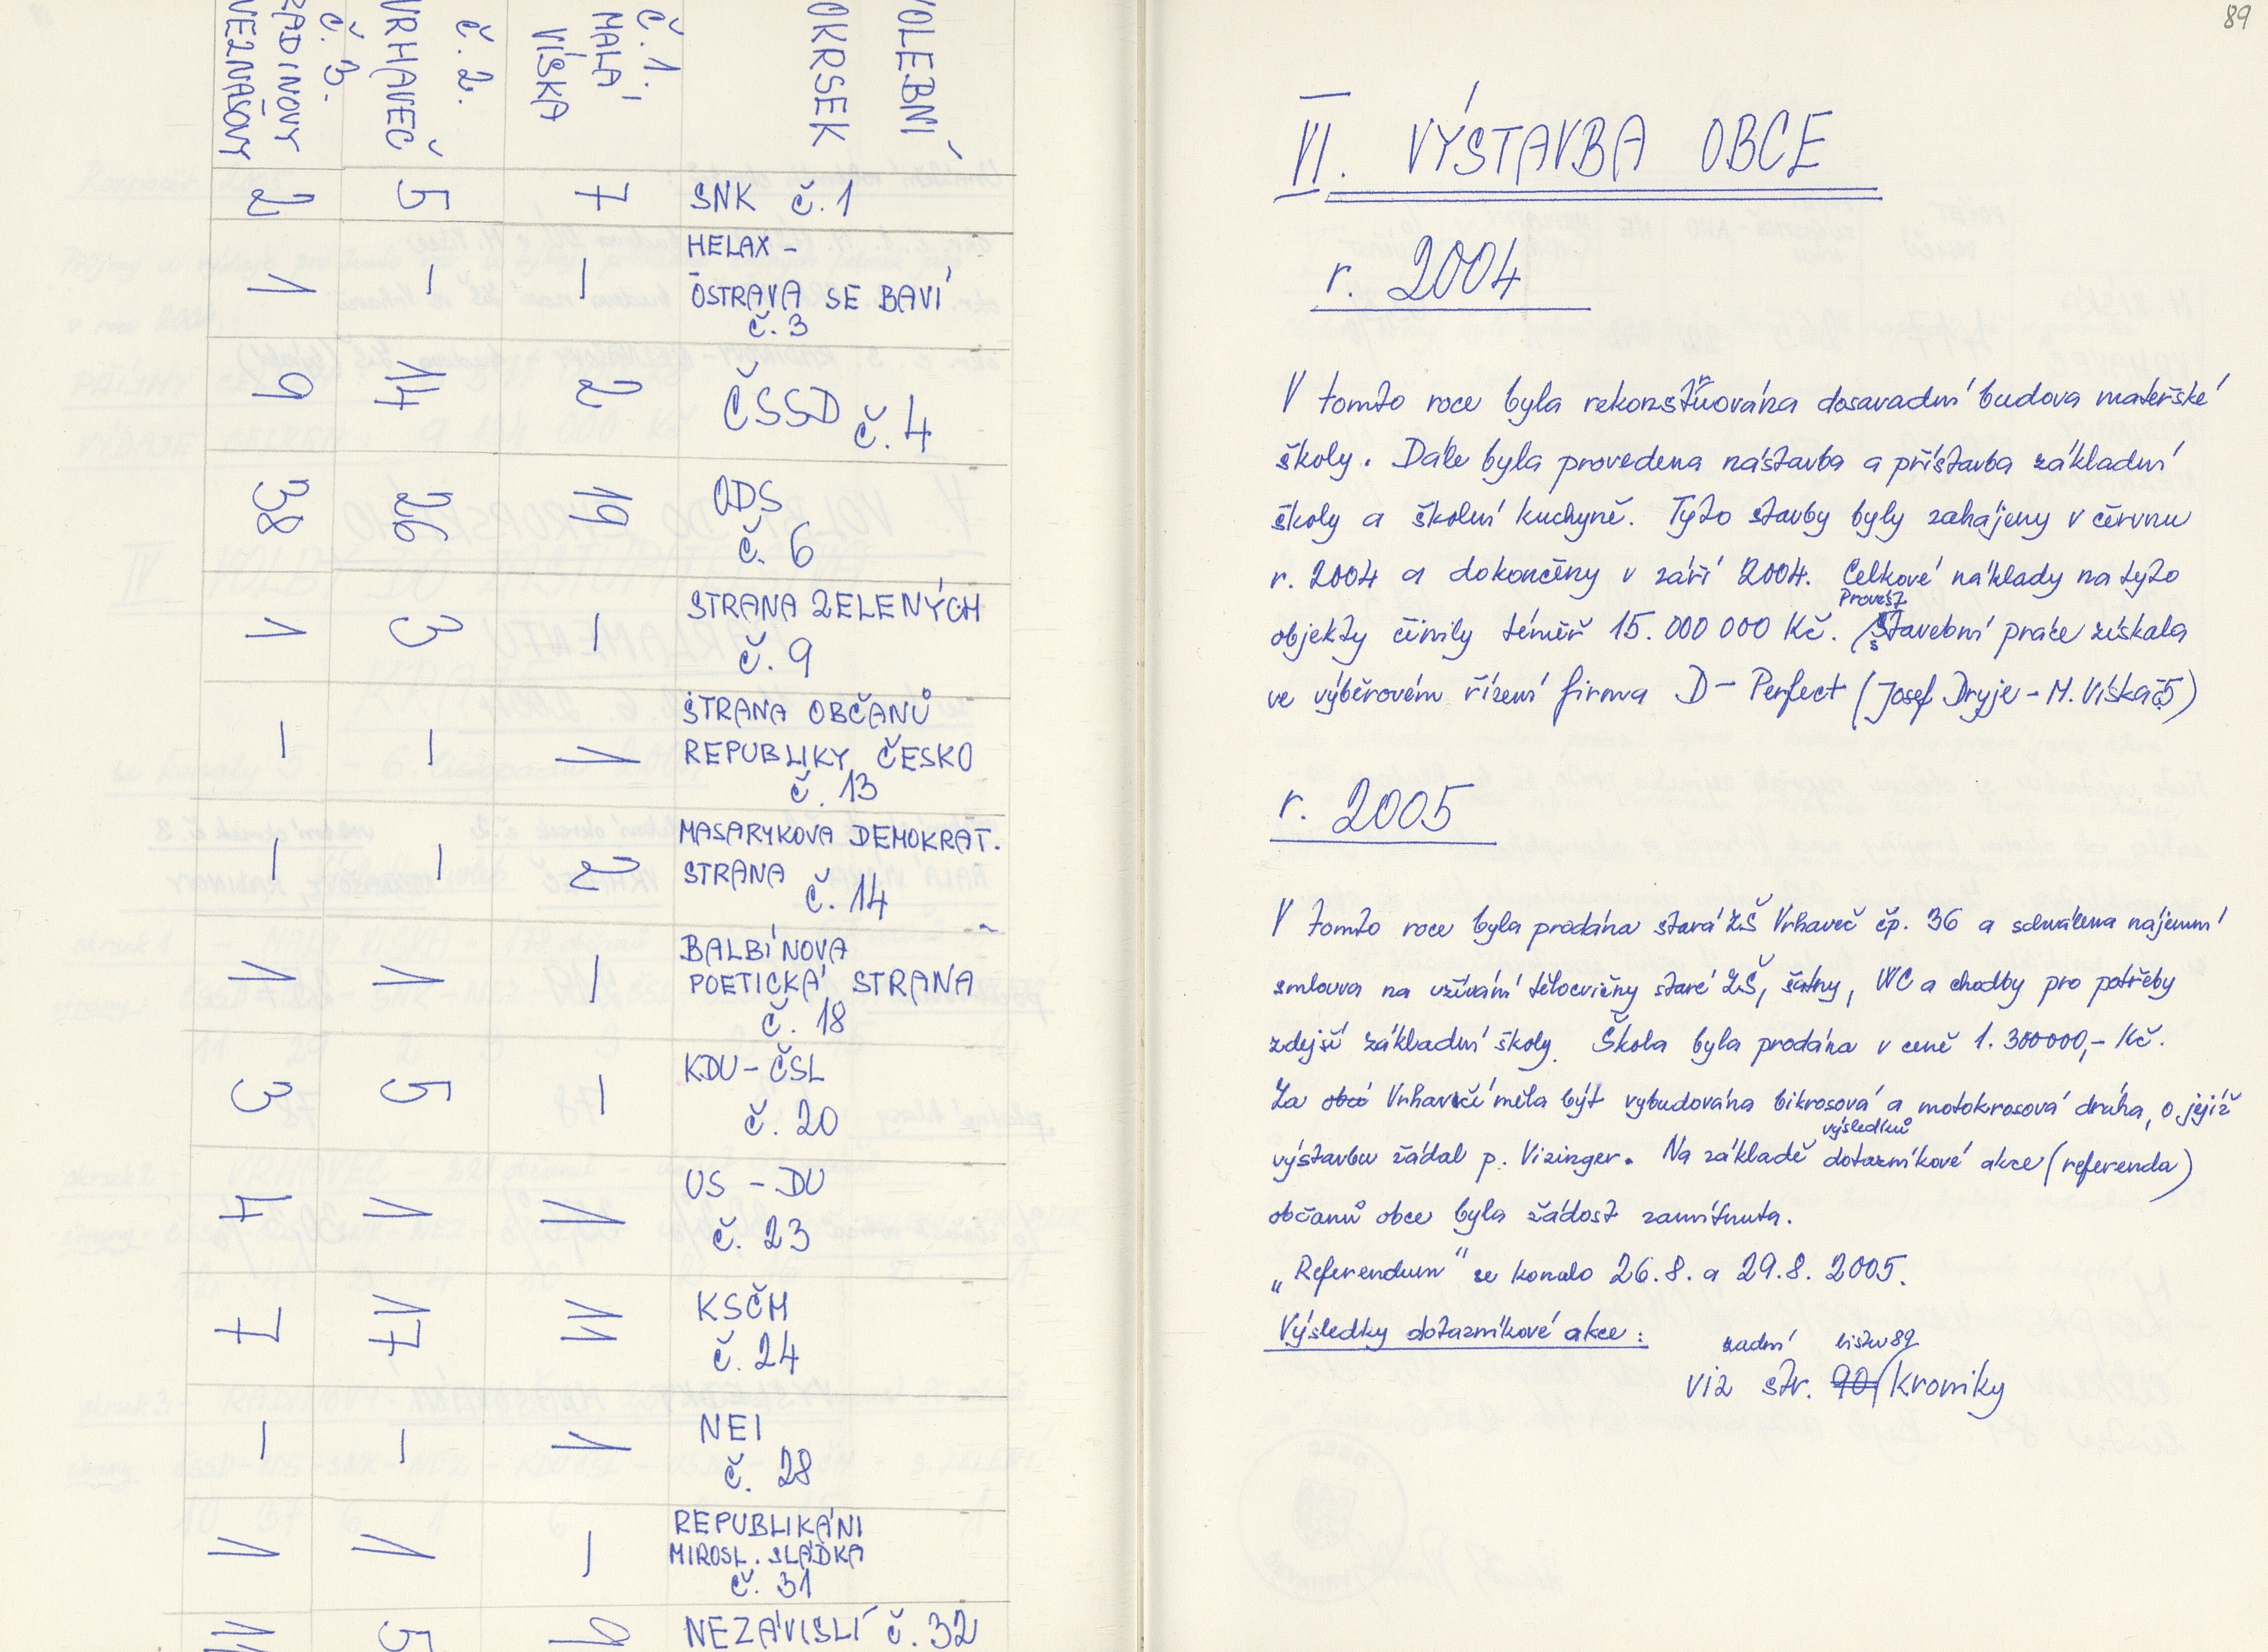 VOLEBNÍ
OKRSEK
Č. 1.
MALÁ
VÍSKA
Č. 2.
VRHAVEČ
Č. 3.
RADINOVY
NEZNAŠOVY
SNK č. 1
7 5 2
HELAX -
OSTRAVA SE BAVÍ
č. 3
- - 1
ČSSD č. 4
2 14 9
ODS
č. 6
19 26 38
STRANA ZELENÝCH
č. 9
- 3 1
STRANA OBČANŮ
REPUBLIKY ČESKO
č. 13
1 - -
MASARYKOVA DEMOKRAT.
STRANA č. 14
2 - -
BALBÍNOVA
POETICKÁ STRANA
č. 18
- 1 1
KDU-ČSL
č. 20
- 5 3
US - DU
č. 23
1 1 4
KSČM
č. 24
11 17 7
NEI
č. 28
1 - -
REPUBLIKÁNI
MIROSL. SLÁDKA
č. 31
- 1 1
NEZÁVISLÍ č. 32
9 5 11
89
VI. VÝSTAVBA OBCE
r. 2004
V tomto roce byla rekonstruována dosavadní budova mateřské
školy. Dále byla provedena nástavba a přístavba základní
školy a školní kuchyně. Tyto stavby byly zahájeny v červnu
r. 2004 a dokončeny v září 2004. Celkové náklady na tyto
objekty činily téměř 15.000 000 Kč. Provést stavební práce získala
ve výběrovém řízení firma D- Perfect (Josef Dryje - M. Víska č. 5)
r. 2005
V tomto roce byla prodána stará ZŠ Vrhaveč čp. 36 a schválena nájemní
smlouva na užívání tělocvičny staré ZŠ, šatny, WC a chodby pro potřeby
zdejší základní školy. Škola byla prodána v ceně 1.300000,- Kč.
Za obcí Vrhavčí měla být vybudována bikrosová a motokrosová dráha, o jejíž
výstavbu žádal p. Vizinger. Na základě výsledků dotazníkové akce (referenda)
občanů obce byla žádost zamítnuta.
„Referendum" se konalo 26.8. a 29.8. 2005.
Výsledky dotazníkové akce:
zadní listu 89
viz str. 90 kroniky